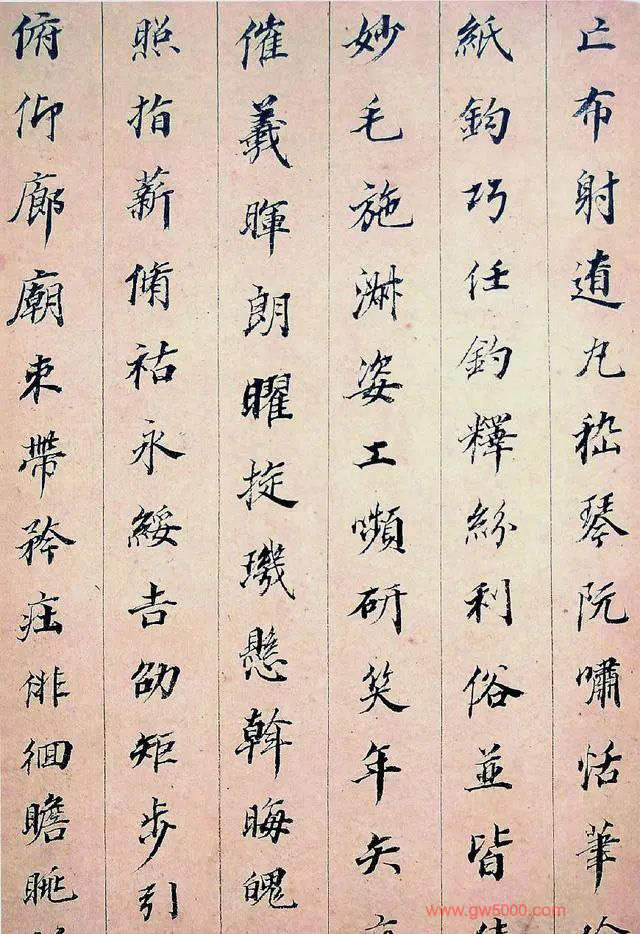 亡布射遼丸嵇琴阮嘯恬筆
紙鈞巧任釣釋紛利俗並皆
妙毛施淑姿工嚬研笑年矢
催羲暉朗曜旋璣懸斡晦魄
照指薪脩祜永綏吉劭矩步引
俯仰廊廟束帶矜莊徘徊瞻眺
www.gw5000.com